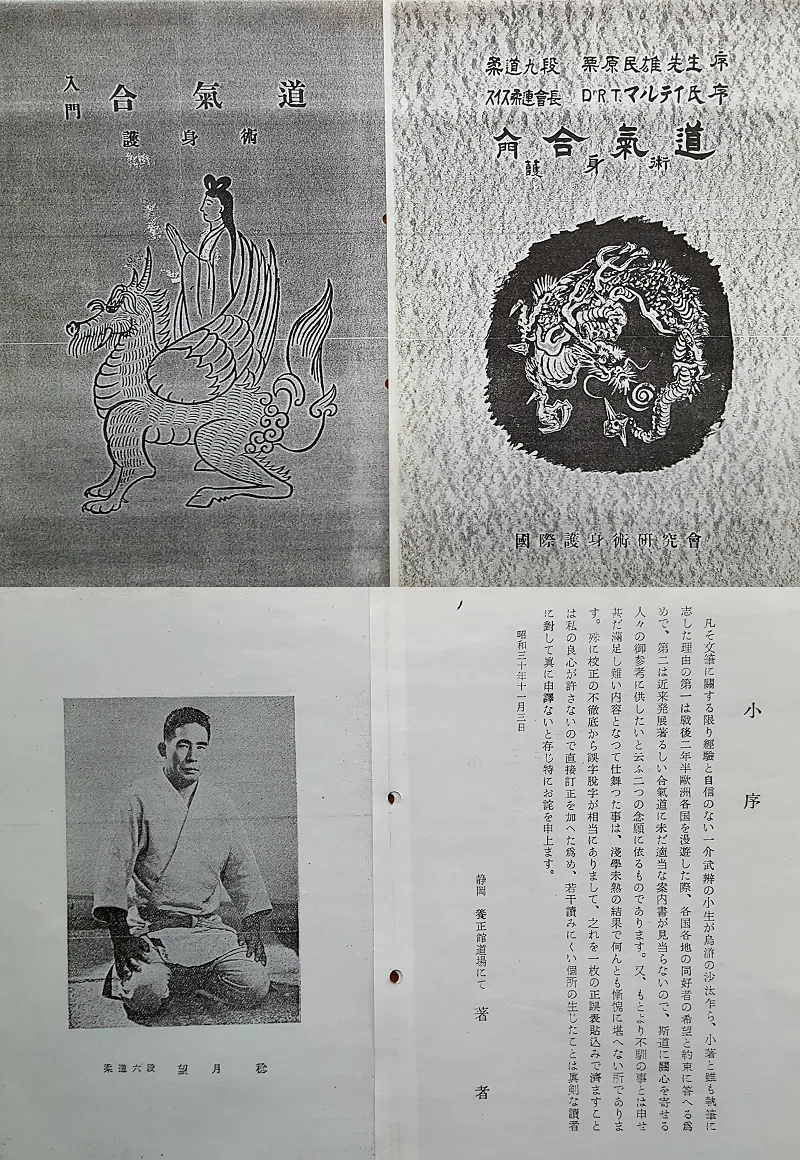 入門 合氣道
護身術
柔道九段 栗原民雄先生 序
スイス柔連會長 DʳR.T.マルテイ氏 序
入門 合氣道
護身術
國際護身術研究會
柔道六段 望月 稔
小序
凡そ文筆に關する限り經驗と自信のない一介武辨の小生が烏滸の沙汰乍ら、小著と雖も執筆に
志した理由の第一は戰後二年半歐洲各国を漫遊した際、各国各地の同好者の希望と約束に答へる爲
めで、第二は近来発展著るしい合氣道に未だ適当な案内書が見当らないので、斯道に關心を寄せる
人々の御参考に供したいと云ふ二つの念願に依るものであります。又、もとより不馴の事とは申せ
甚だ滿足し難い内容となつて仕舞つた事は、淺學未熟の結果で何んとも慚愧に堪へない所でありま
す。殊に校正の不徹底から誤字脫字が相当にありまして、之れを一枚の正誤表貼込みで濟ますこと
は私の良心が許さないので直接訂正を加へた爲め、若干讀みにくい個所の生じたことは眞剣な讀者
に對して眞に申譯ないと存じ特にお詫を申上ます。
昭和三十年十一月三日
静岡 養正館道場にて
著者